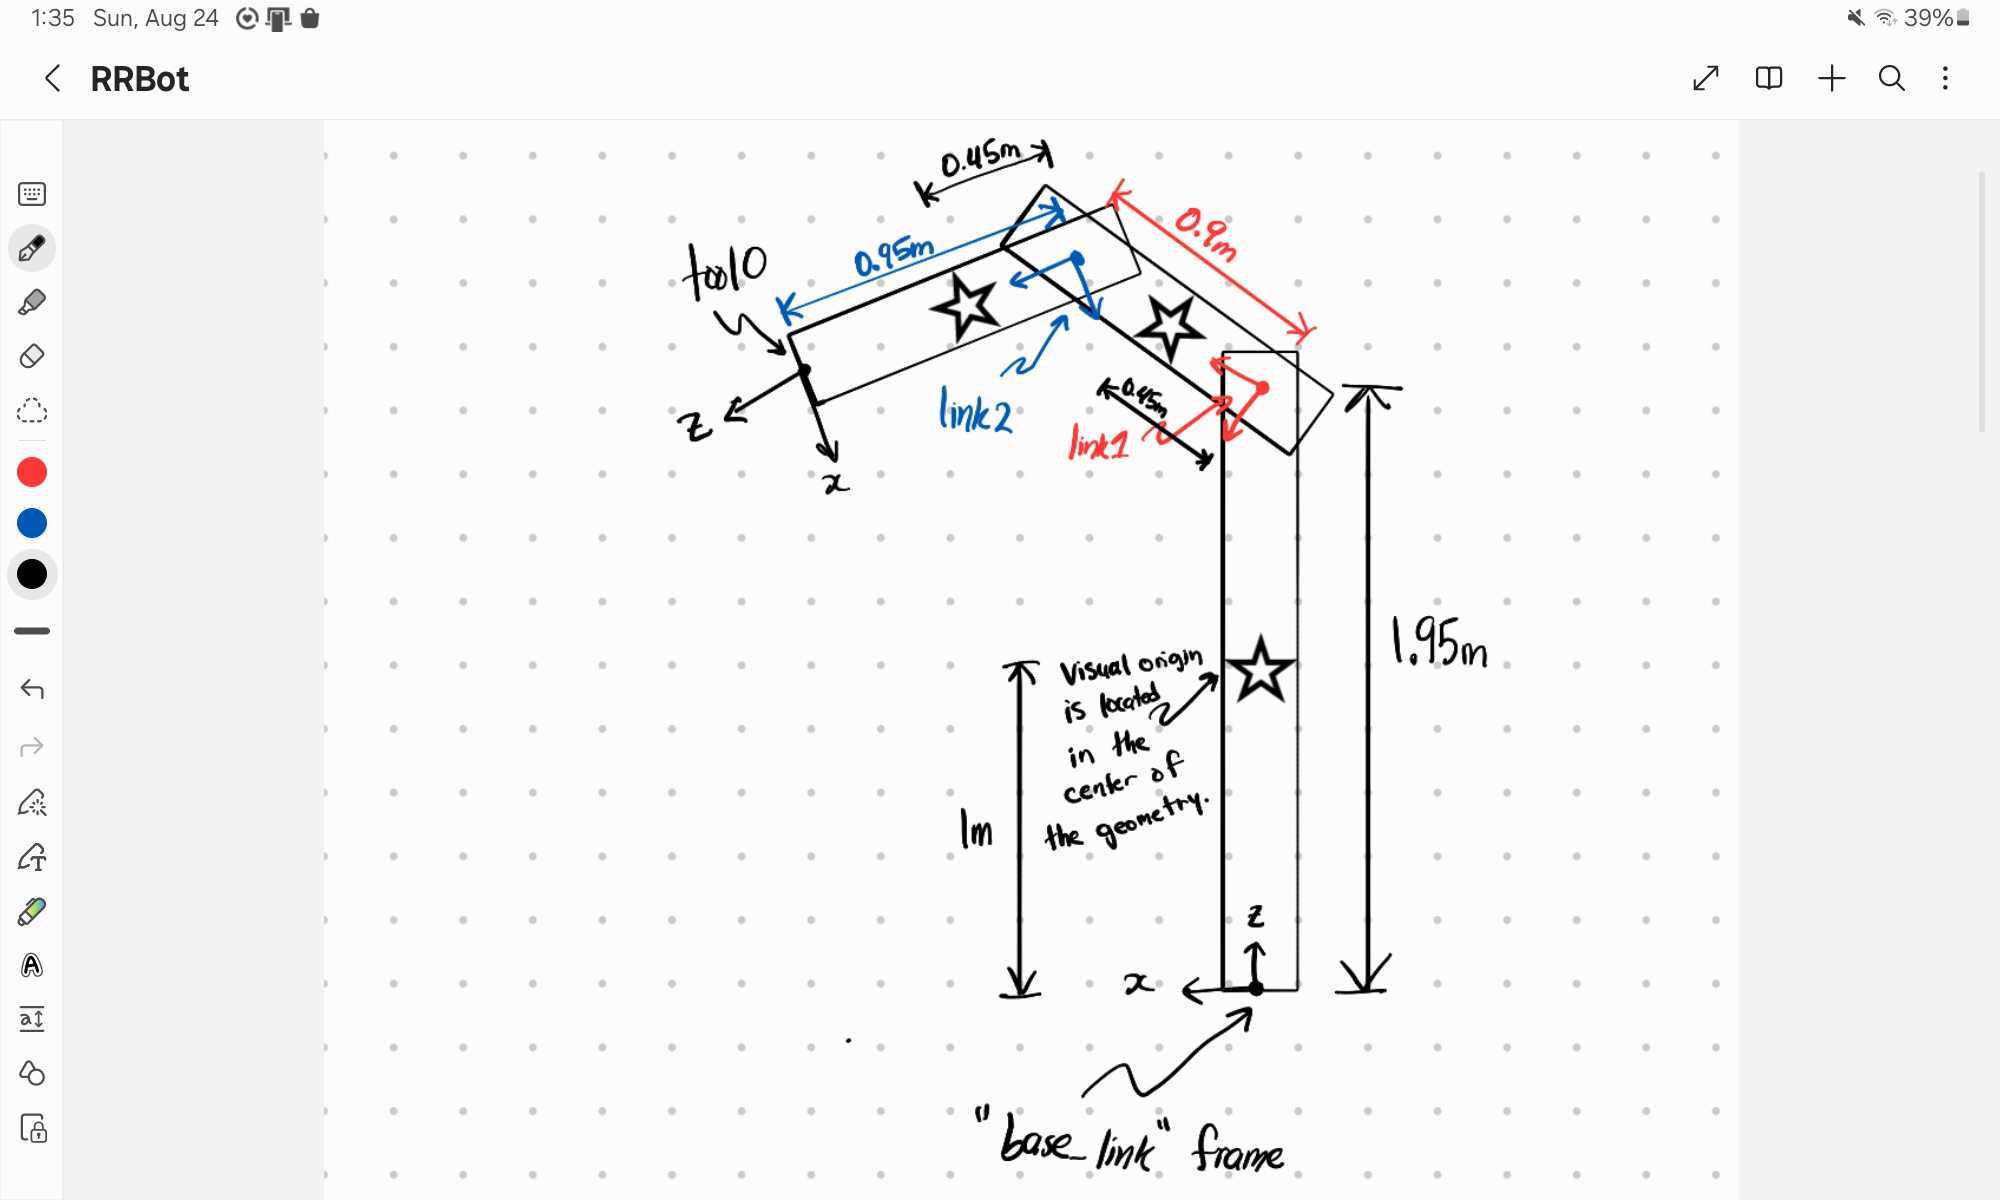 1:35 Sun, Aug 24
39%
RRBot
0.45m
0.9m
0.95m
tool0
link2
0.45m
link1
z
x
1.95m
Visual origin
is located
in the
center of
the geometry.
1m
z
x
"base_link" frame